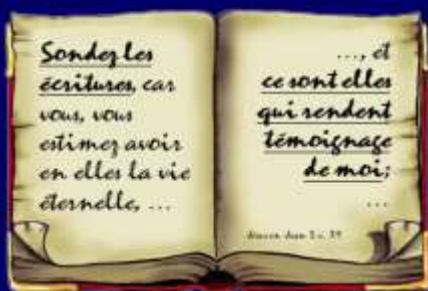 Sondez les
écritures, car
vous, vous
estimez avoir
en elles la vie
éternelle, ...
..., et
ce sont elles
qui rendent
témoignage
de moi;
...
Jean 5 v. 39